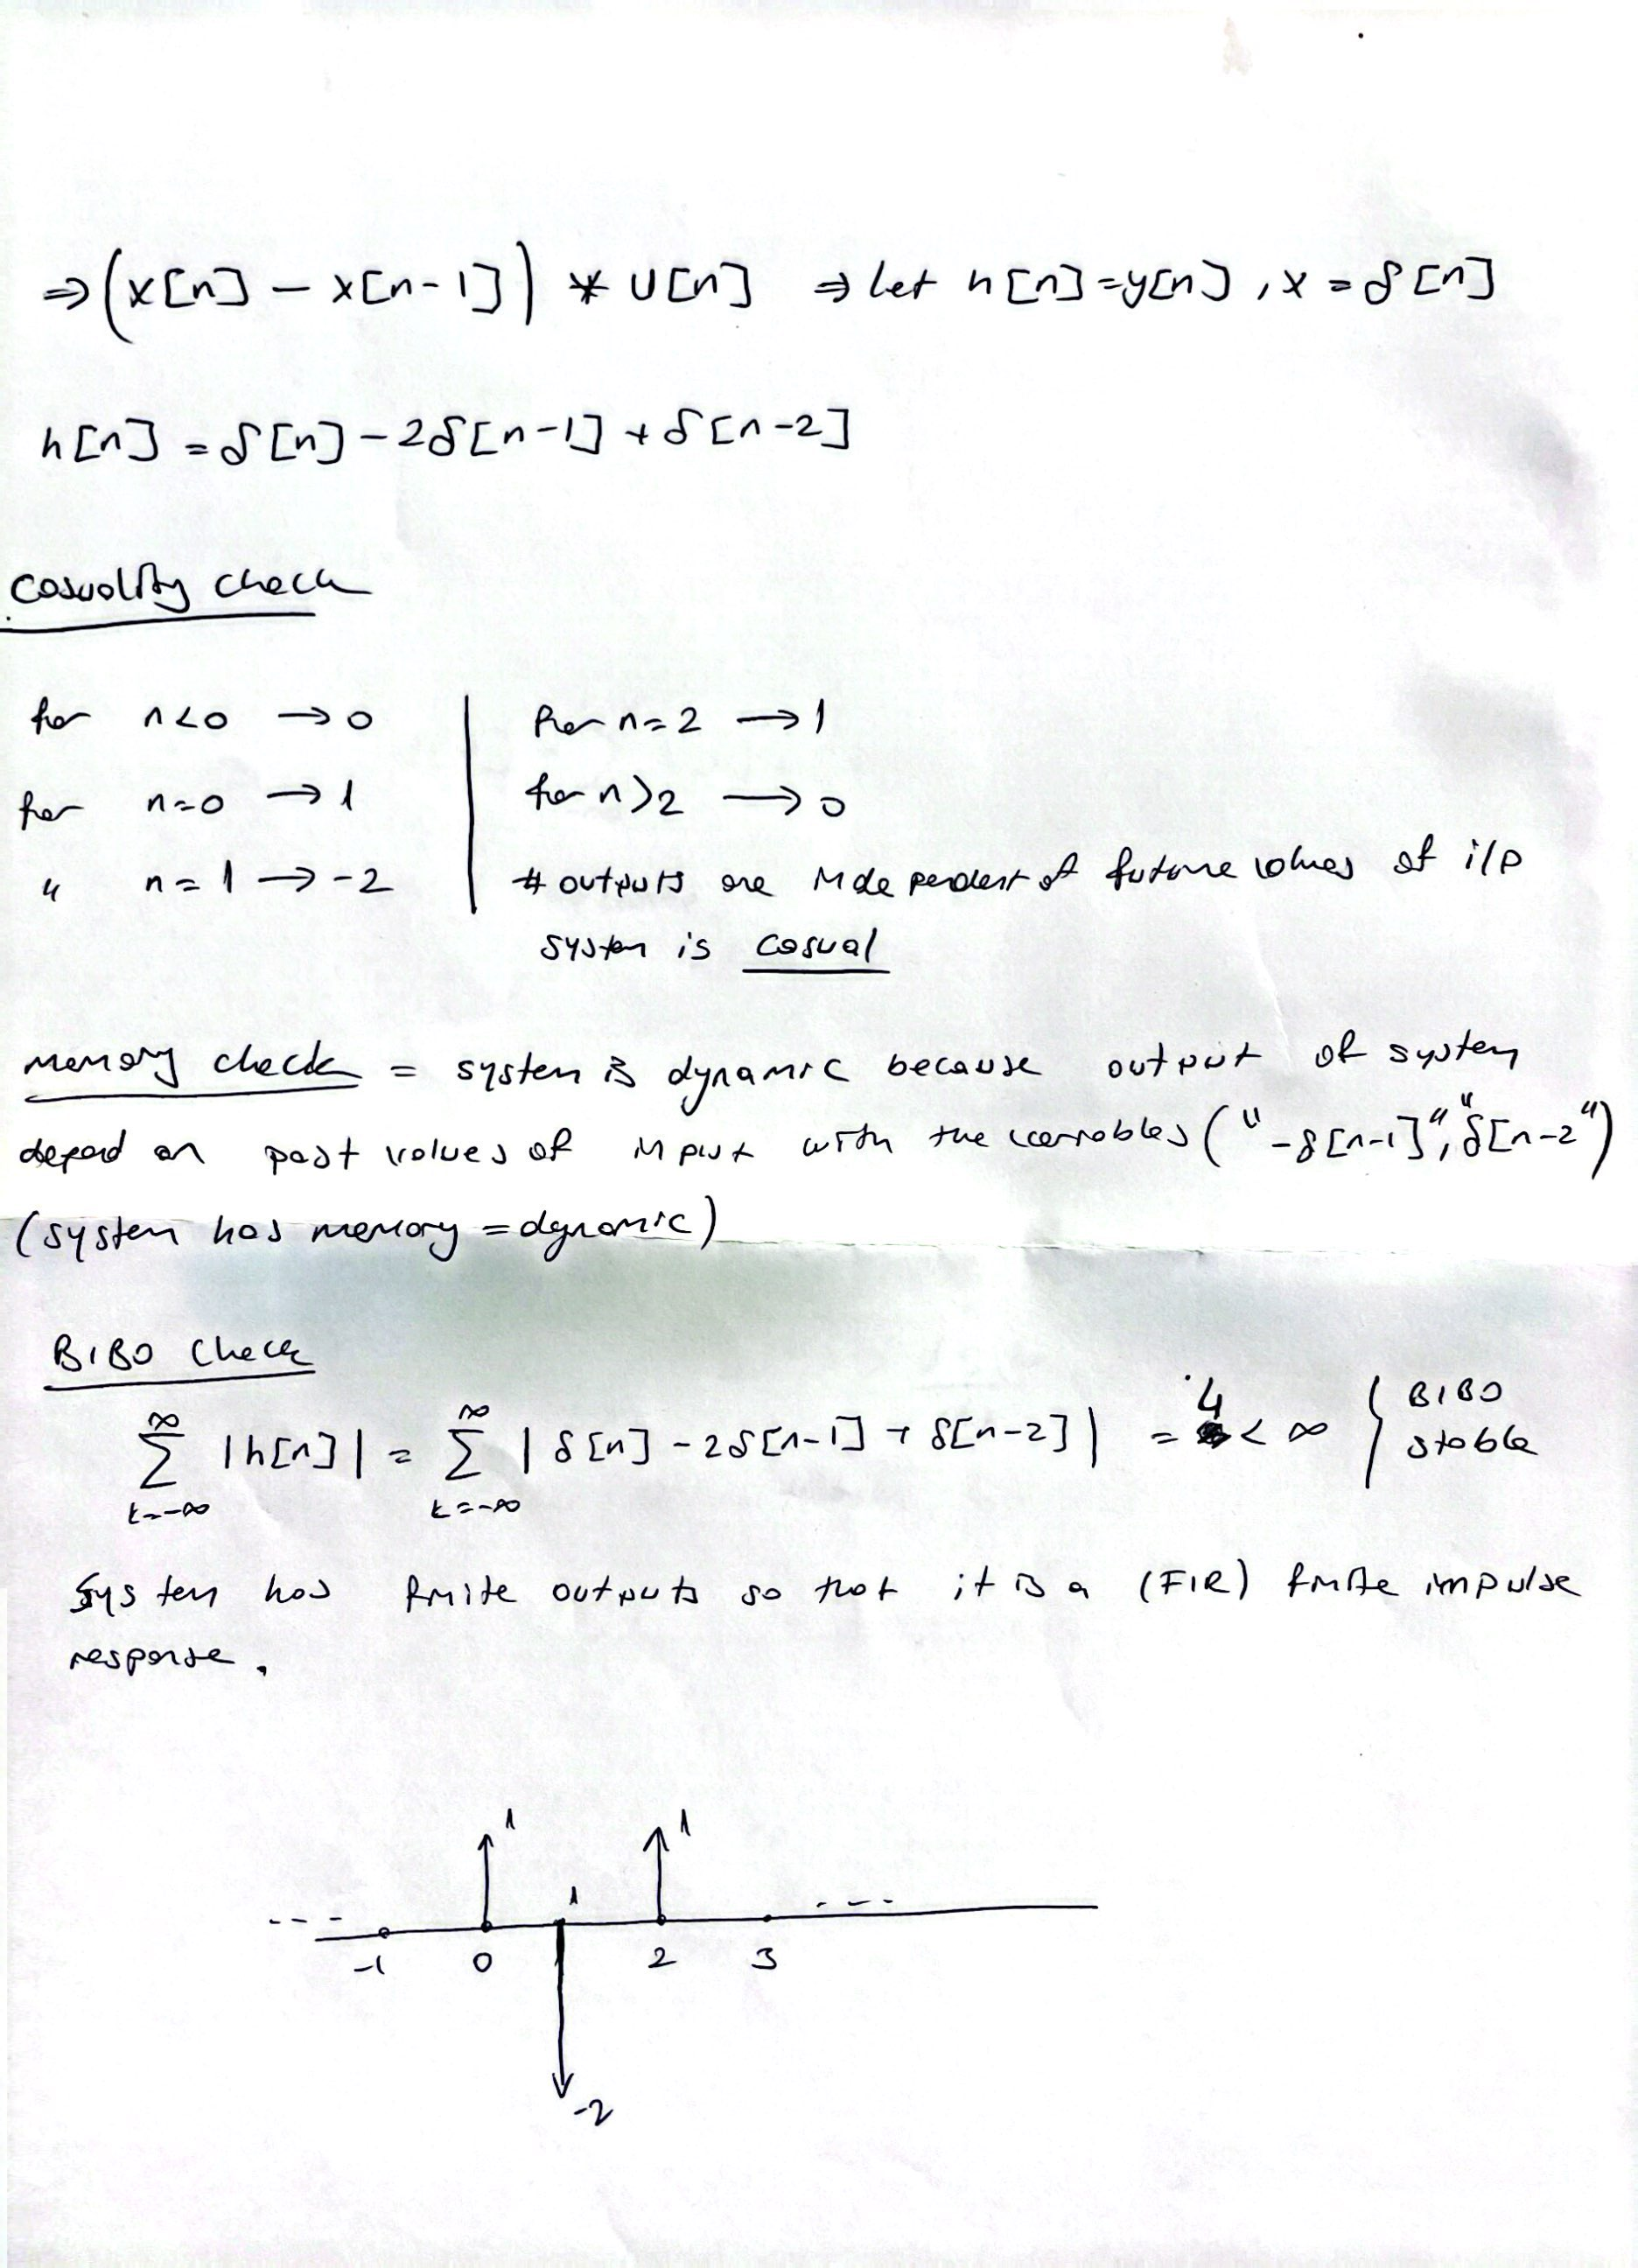 ⇒ (x[n] - x[n-1]) * U[n] ⇒ let h[n]=y[n], x = δ[n]
h[n] = δ[n] - 2δ[n-1] + δ[n-2]
Casuality check
for n<0 → 0
for n=0 → 1
" n=1 → -2
for n=2 → 1
for n>2 → 0
# outputs are independent of future values of i/p
system is casual
memory check = system is dynamic because output of system
depend on past values of input with the variables ("-δ[n-1]", "δ[n-2")
(system has memory = dynamic)
BIBO Check
∞ ∞
∑ |h[n]| = ∑ |δ[n] - 2δ[n-1] + δ[n-2]| = 4 < ∞ } BIBO stable
k=-∞ k=-∞
System has finite outputs so that it is a (FIR) finite impulse
response.
1 1
--- 1 ---
-1 0 2 3
-2